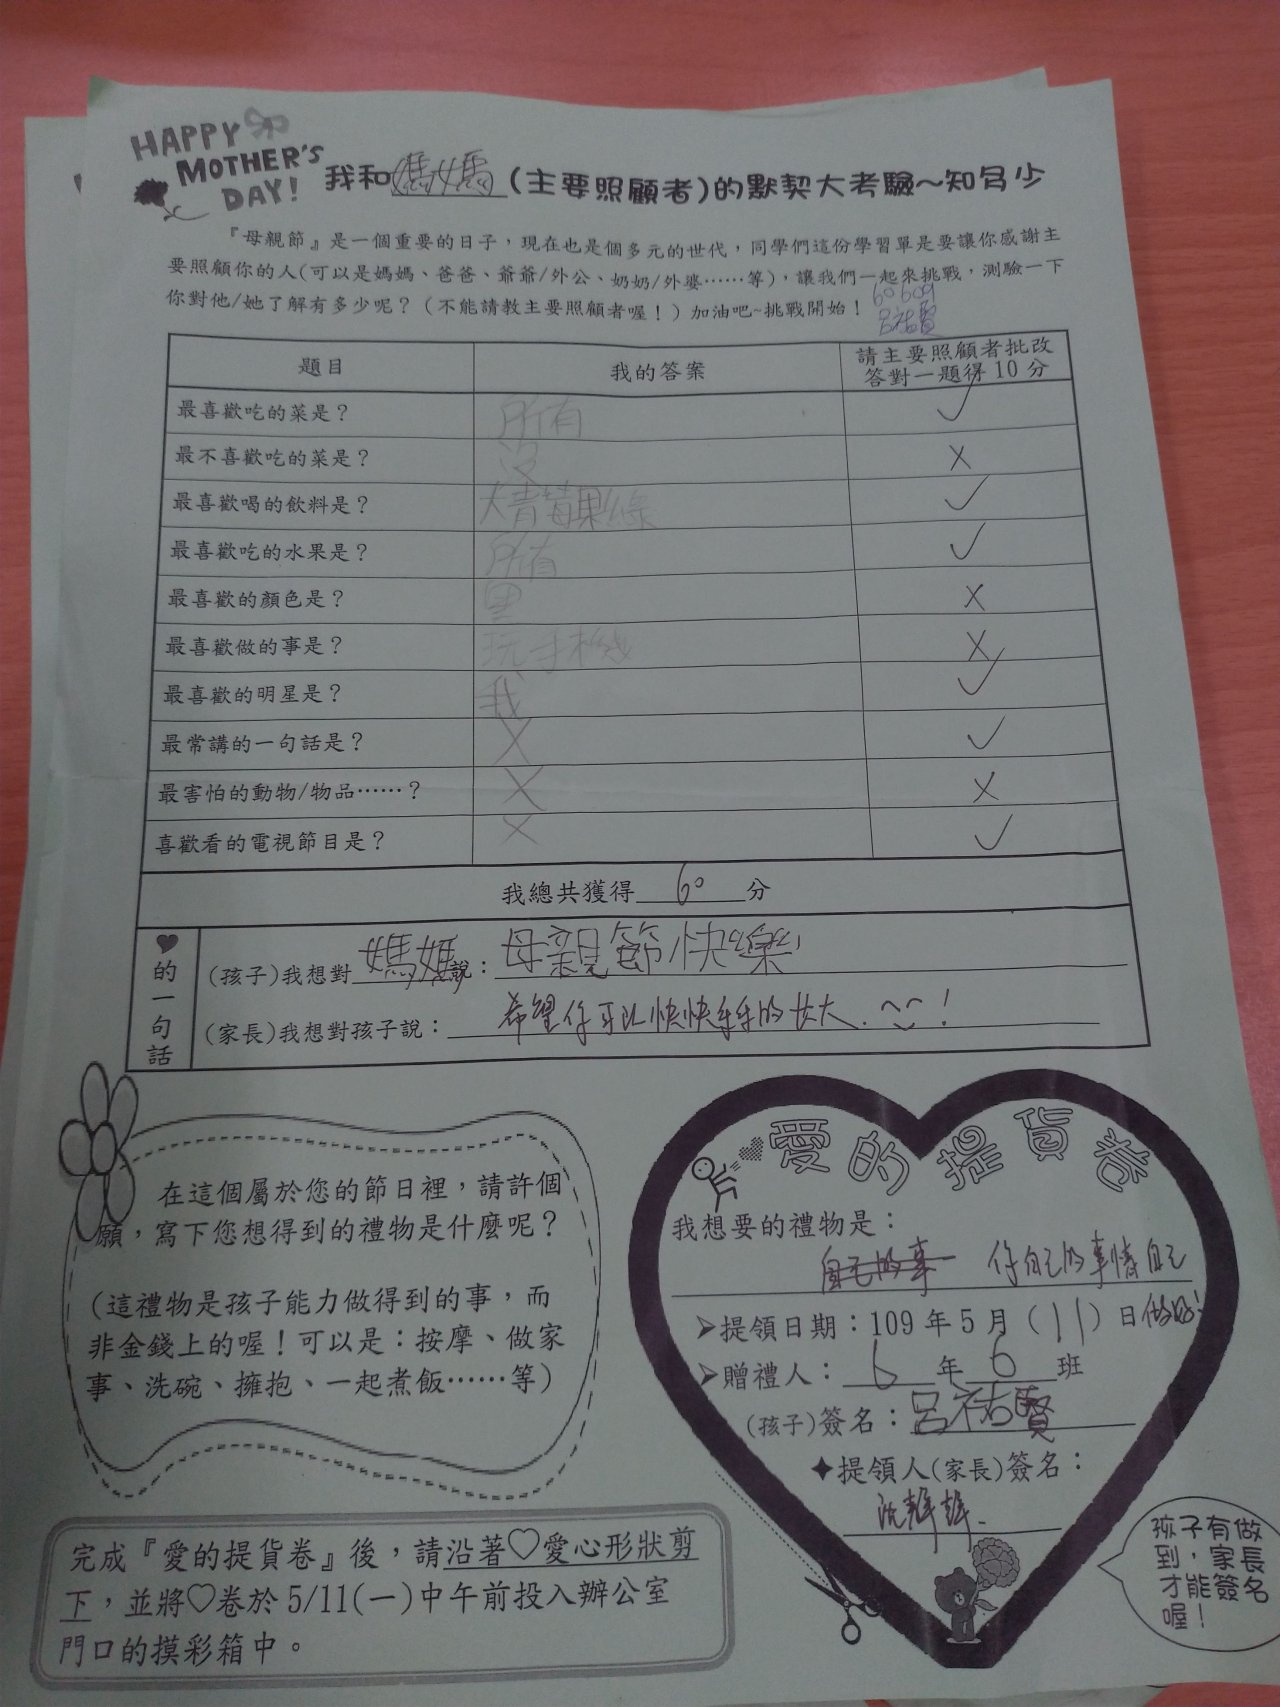 HAPPY
MOTHER'S
DAY!
我和媽媽(主要照顧者)的默契大考驗~知多少
『母親節』是一個重要的日子，現在也是個多元的世代，同學們這份學習單是要讓你感謝主
要照顧你的人(可以是媽媽、爸爸、爺爺/外公、奶奶/外婆……等)，讓我們一起來挑戰，測驗一下
你對他/她了解有多少呢？（不能請教主要照顧者喔！）加油吧~挑戰開始！
60609
呂祐賢
題目 我的答案 請主要照顧者批改
答對一題得10分
最喜歡吃的菜是？ 所有 ✓
最不喜歡吃的菜是？ 沒 X
最喜歡喝的飲料是？ 大青蘋果綠 ✓
最喜歡吃的水果是？ 所有 ✓
最喜歡的顏色是？ 黑 X
最喜歡做的事是？ 玩手機 X
最喜歡的明星是？ 我 ✓
最常講的一句話是？ X ✓
最害怕的動物/物品……？ X X
喜歡看的電視節目是？ X ✓
我總共獲得60分
♥的一句話
(孩子)我想對媽媽說：母親節快樂
(家長)我想對孩子說：希望你可以快快乐乐的长大.！
在這個屬於您的節日裡，請許個
願，寫下您想得到的禮物是什麼呢？
(這禮物是孩子能力做得到的事，而
非金錢上的喔！可以是：按摩、做家
事、洗碗、擁抱、一起煮飯……等)
完成『愛的提貨卷』後，請沿著♡愛心形狀剪
下，並將♡卷於5/11(一)中午前投入辦公室
門口的摸彩箱中。
愛的提貨卷
我想要的禮物是：
自己的事 你自己的事情自己
做好！
➢提領日期：109年5月（11）日
➢贈禮人：6年6班
(孩子)簽名：呂祐賢
✦提領人(家長)簽名：
孩子有做
到，家長
才能簽名
喔！